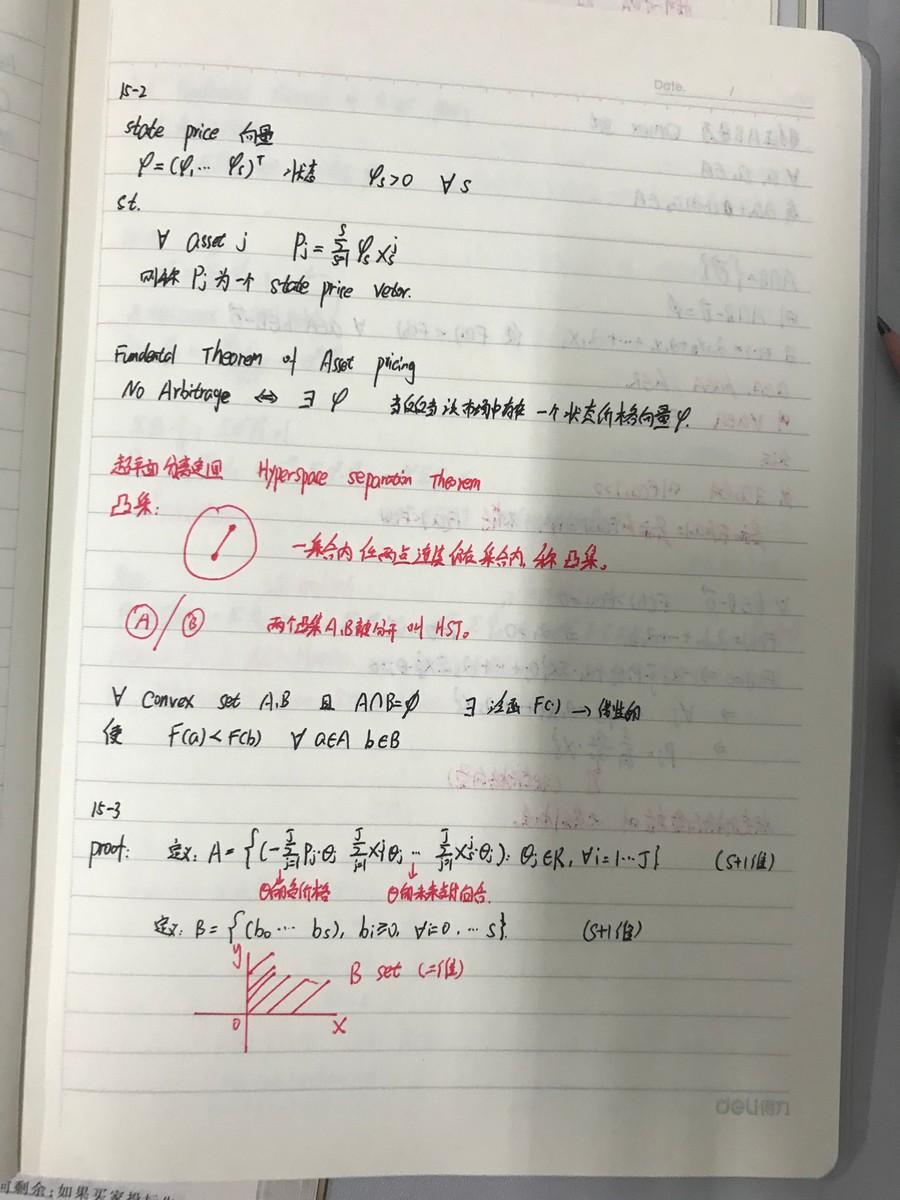 Date. /
15-2
state price 向量
φ=(φ₁… φs)ᵀ 状态 φs>0 ∀s
st.
∀ asset j Pj=∑_{s=1}^{S} φs Xs^j
则称 Pj 为一个 state price vetor.
Fundental Theorem of Asset pricing
No Arbitrage ⇔ ∃ φ 当仅仅当 市场中存在 一个状态价格向量φ.
超平面分离定理 Hyperspace separation Theorem
凸集:
一集合内 任两点连线仍在集合内, 称 凸集。
A / B 两个凸集A,B被分开 叫 HST。
∀ Convex set A,B 且 A∩B=∅ ∃ 泛函 F(·) → 线性的
使 F(a)<F(b) ∀ a∈A b∈B
15-3
proof: 定义: A={(-∑_{j=1}^{J} Pj·θj ∑_{j=1}^{J} X₁^jθj … ∑_{j=1}^{J} Xs^jθj): θj∈R, ∀i=1…J} (S+1维)
θ的负价格 θ的未来支付
定义: B={(b₀… bs), bi≥0, ∀i=0,…s}. (S+1维)
y
B set (二维)
0 x
deli得力
可剩余;如果买家